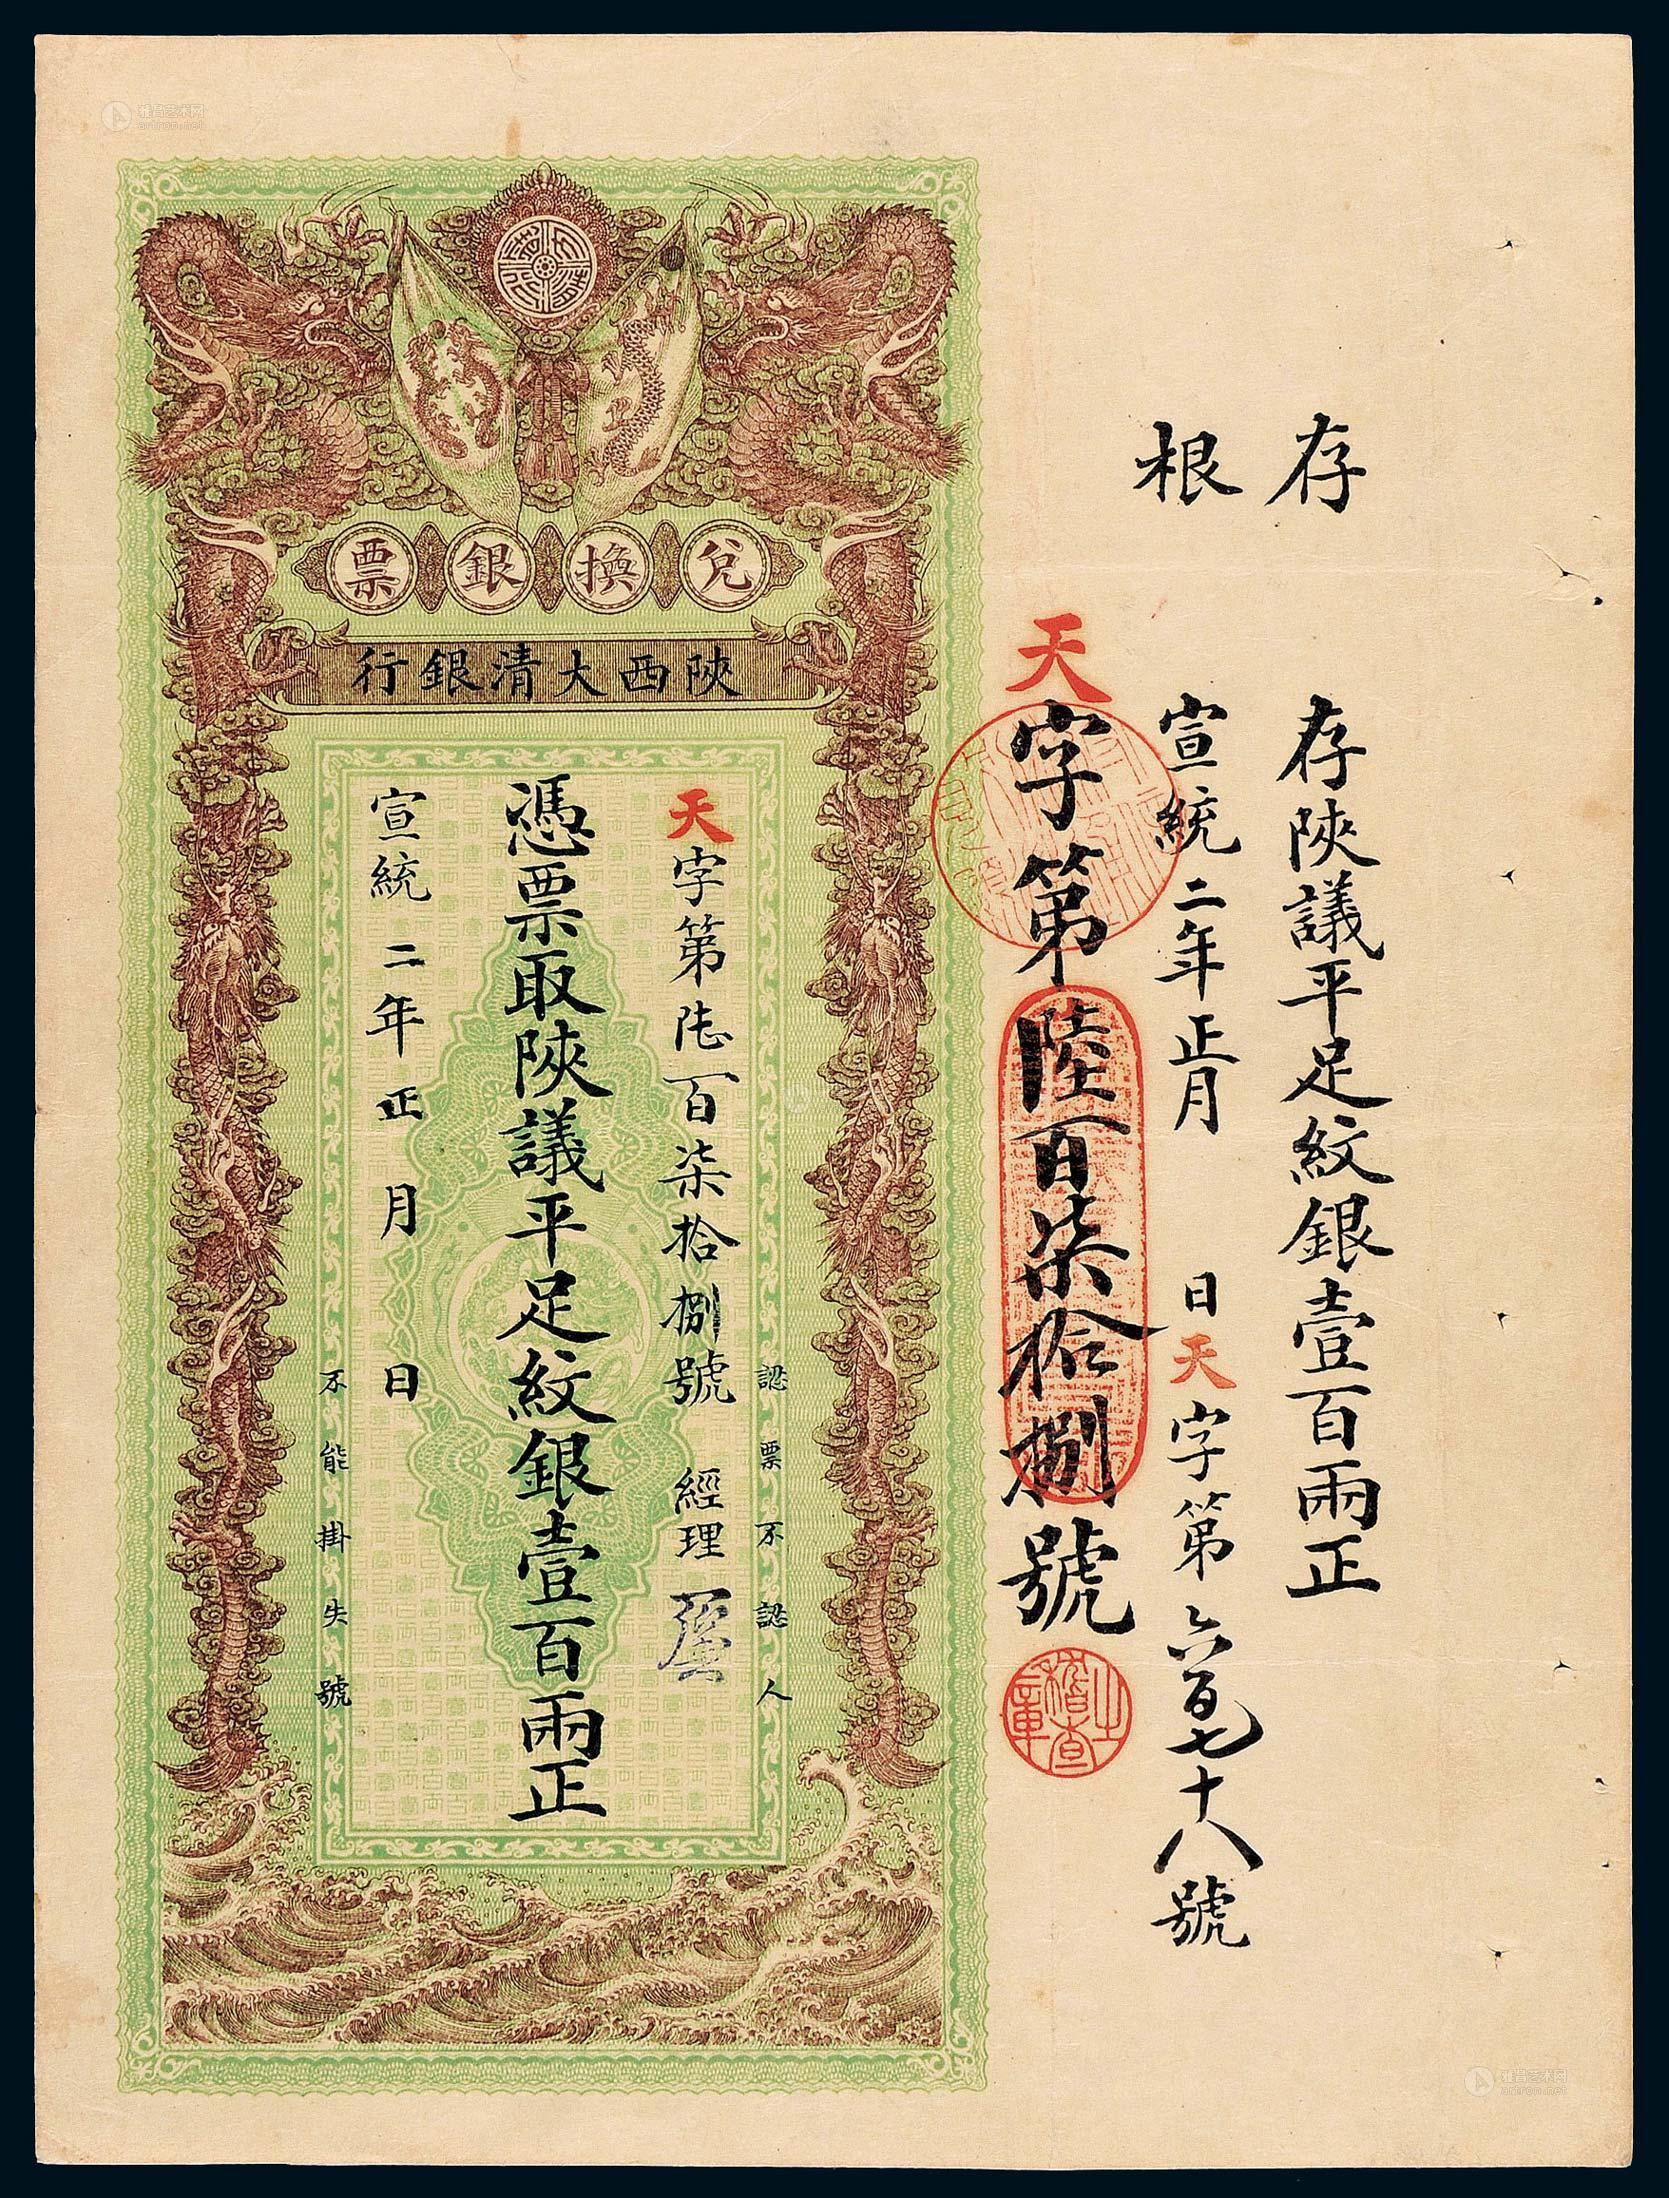 存根
存陝議平足紋銀壹百兩正
宣統二年正月 日天字第六百七十八號
天字第陸百柒拾捌號
稽查之章
兌換銀票
陝西大清銀行
認票不認人
天字第陸百柒拾捌號 經理
憑票取陝議平足紋銀壹百兩正
宣統二年正月日
不能掛失號
雅昌艺术网
artron.net
雅昌艺术网
artron.net